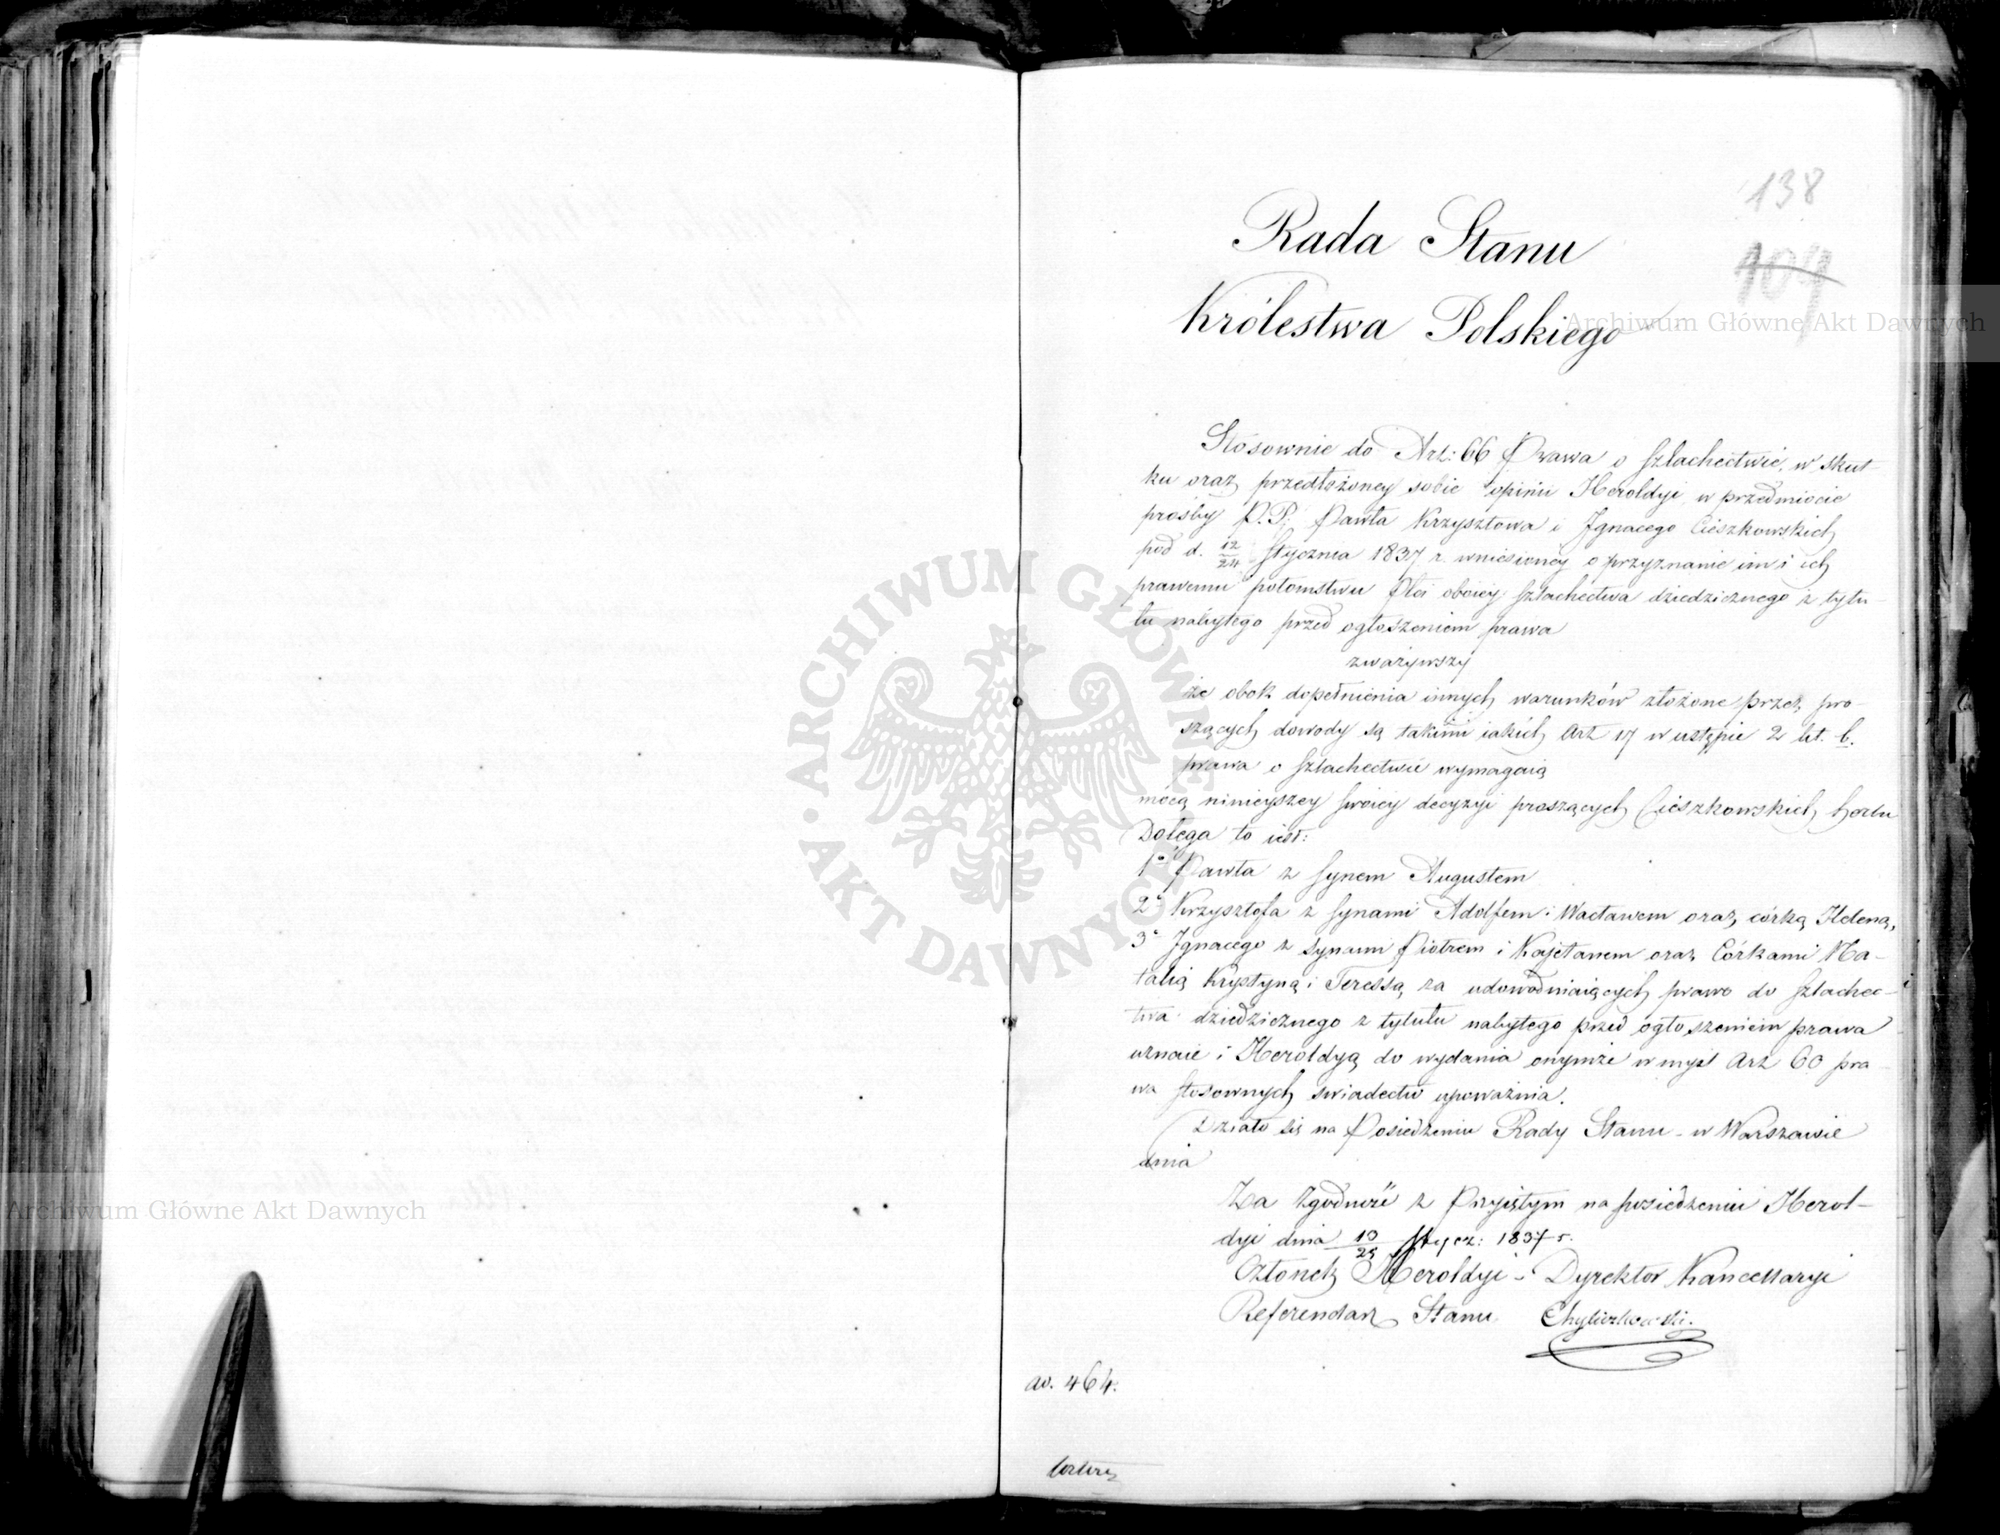 138
107
Rada Stanu
Królestwa Polskiego
Stósownie do Art: 66 Prawa o szlachectwie, w skut-
ku oraz przedłożoney sobie opinii Heroldyi w przedmiocie
prośby P.P. Pawła Krzysztowa i Ignacego Cieszkowskich
pod d. 12/24 Stycznia 1837 r. wniesioney o przyznanie im i ich
prawemu potomstwu Płci oboiey szlachectwa dziedzicznego z tytu-
łu nabytego przed ogłoszeniem prawa
zważywszy
że obok dopełnienia innych warunków złożone przez pro-
szących dowody są takimi iakich Art 17 w ustępie 2 lit. b.
prawa o szlachectwie wymagaią
mocą ninieyszey swoiey decyzyi proszących Cieszkowskich herbu
Dołęga to iest:
1° Pawła z synem Augustem
2° Krzysztofa z synami Adolfem i Wacławem oraz córką Heleną,
3° Ignacego z synami Piotrem i Kajetanem oraz Córkami Na-
talią Krystyną i Teressą za udowadniaiących prawo do szlachec-
twa dziedzicznego z tytułu nabytego przed ogłoszeniem prawa
uznaie i Heroldyą do wydania onymże w myśl Art 60 pra-
wa stosownych swiadectw upoważnia.
Działo się na Posiedzeniu Rady Stanu w Warszawie
dnia
Za Zgodność z Przyiętym na posiedzeniu Herol-
dyi dnia 13/25 Stycz: 1837 r.
Członek Heroldyi - Dyrektor Kancellaryi
Referendarz Stanu Chyliczkowski.
ao. 464.
Archiwum Główne Akt Dawnych
Archiwum Główne Akt Dawnych
ARCHIWUM GŁÓWNE AKT DAWNYCH